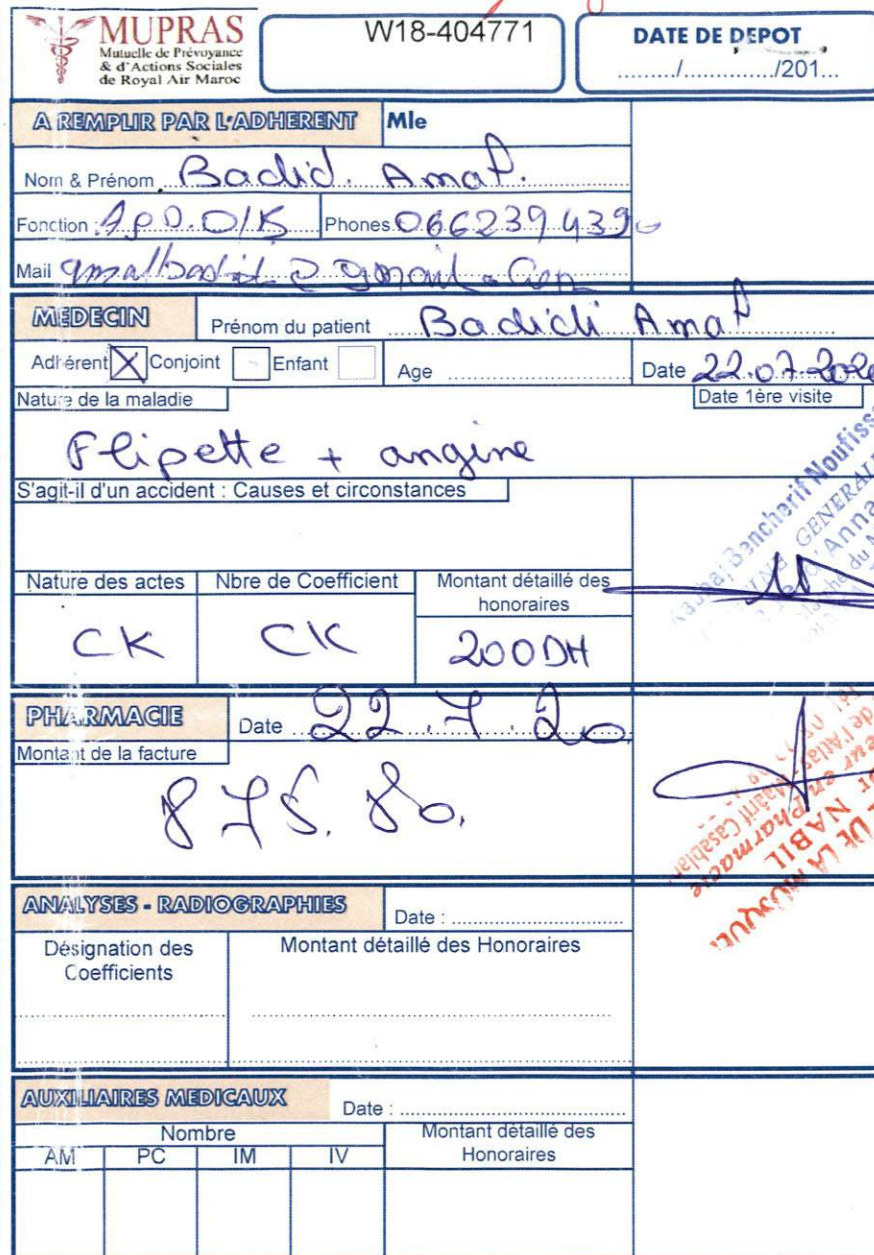 MUPRAS
Mutuelle de Prévoyance
& d'Actions Sociales
de Royal Air Maroc
W18-404771
DATE DE DEPOT
........./............../201...
A REMPLIR PAR L'ADHERENT Mle
Nom & Prénom Badid. Amal.
Fonction : Phones 066239439
Mail gmail
MEDECIN Prénom du patient Badidi Amal
Adhérent X Conjoint Enfant Age Date 22.07.2020
Nature de la maladie Date 1ère visite
Flipette + angine
S'agit-il d'un accident : Causes et circonstances
Nature des actes Nbre de Coefficient Montant détaillé des honoraires
CK CK 200DH
Bencherif Noufissa
GENERALE
PHARMACIE Date 22.7.20
Montant de la facture
875.80.
Maârif Casablan
en Pharmacie
NABIL
DE LA MOSQUE
ANALYSES - RADIOGRAPHIES Date :
Désignation des Coefficients Montant détaillé des Honoraires
AUXILIAIRES MEDICAUX Date :
Nombre Montant détaillé des Honoraires
AM PC IM IV